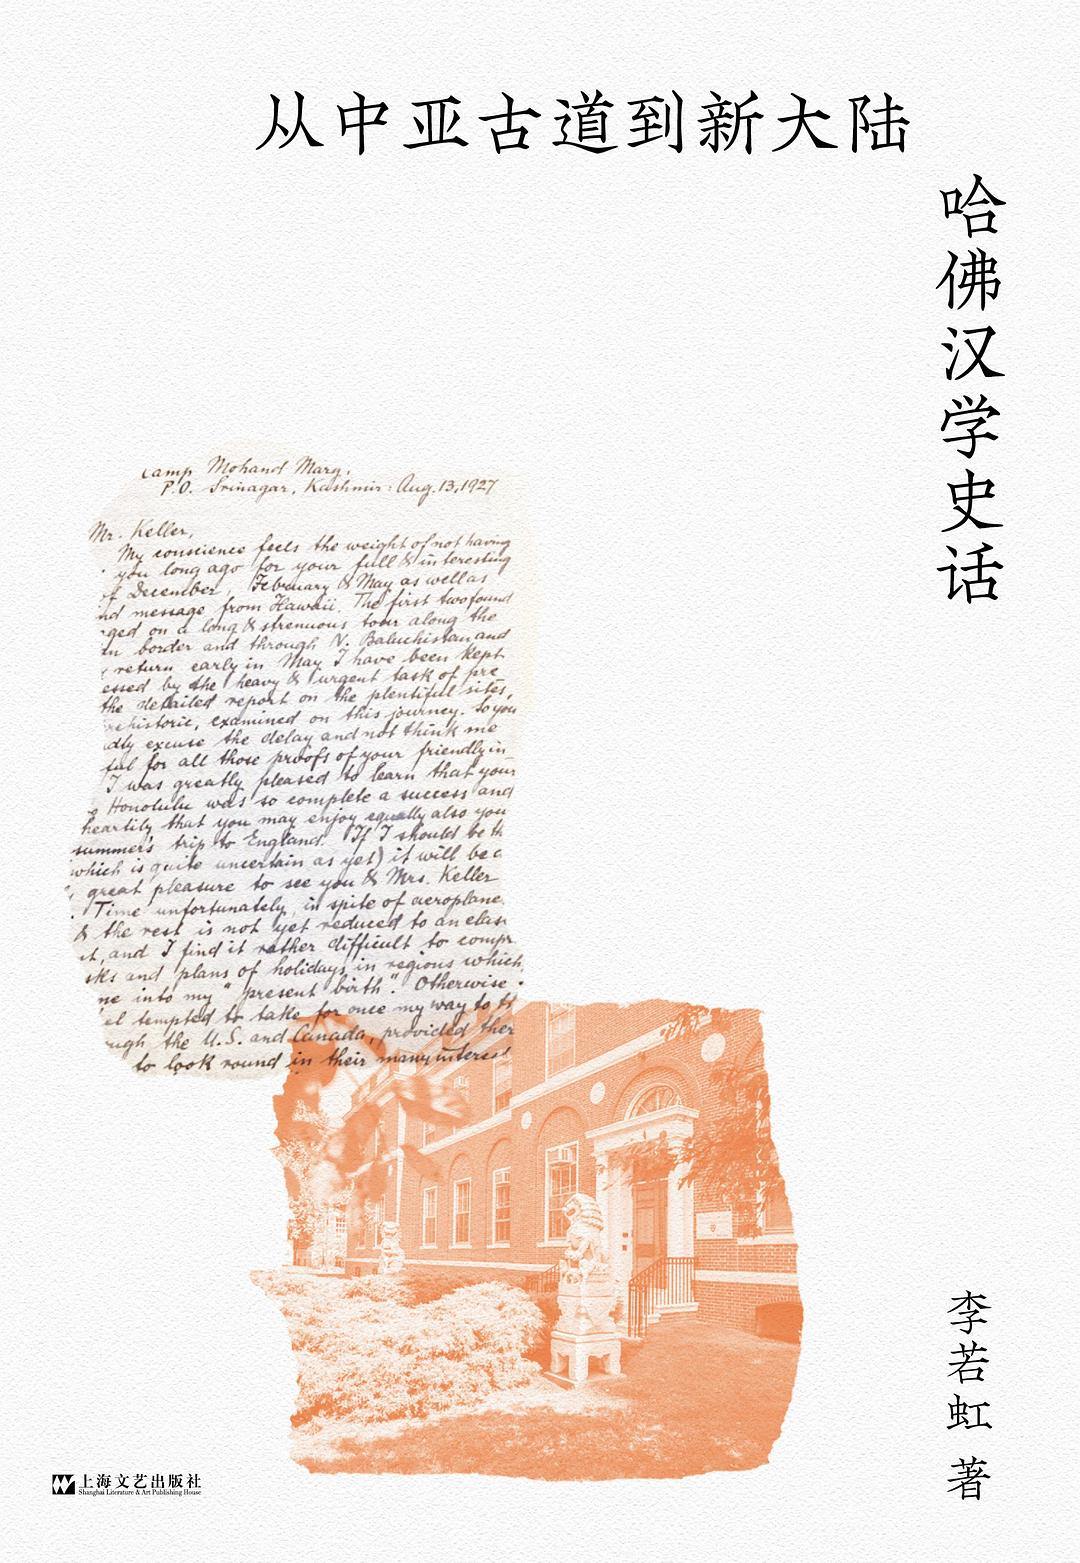 从中亚古道到新大陆
哈佛汉学史话
camp Mohand Marg,
P.O. Srinagar, Kashmir: Aug. 13, 1927
Mr. Keller,
My conscience feels the weight of not having
you long ago for your full & interesting
of December, February & May as well as
nd message from Hawaii. The first two found
ged on a long & strenuous tour along the
an border and through N. Baluchistan and
return early in May I have been kept
essed by the heavy & urgent task of pre
the detailed report on the plentiful sites,
rehistoric, examined on this journey. So you
dly excuse the delay and not think me
ful for all those proofs of your friendly in
I was greatly pleased to learn that your
Honolulu was so complete a success and
heartily that you may enjoy equally also you
summer's trip to England. If I should be th
which is quite uncertain as yet) it will be a
great pleasure to see you & Mrs. Keller
Time unfortunately, in spite of aeroplane
& the rest is not yet reduced to an elas
it, and I find it rather difficult to compr
sks and plans of holidays in regions which
me into my "present birth". Otherwise
el tempted to take for once my way to th
ough the U.S. and Canada, provided ther
to look round in their many interest
李若虹 著
上海文艺出版社
Shanghai Literature & Art Publishing House